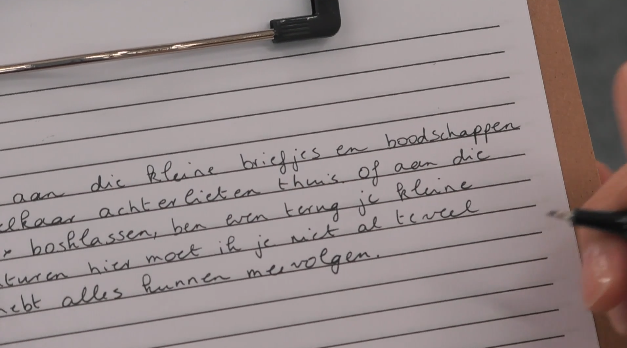 aan die kleine briefjes en boodschappen
elkaar achterlieten thuis of aan die
boshlassen, ben even terug je kleine
turen hier moet ik je niet al teveel
hebt alles kunnen meevolgen.